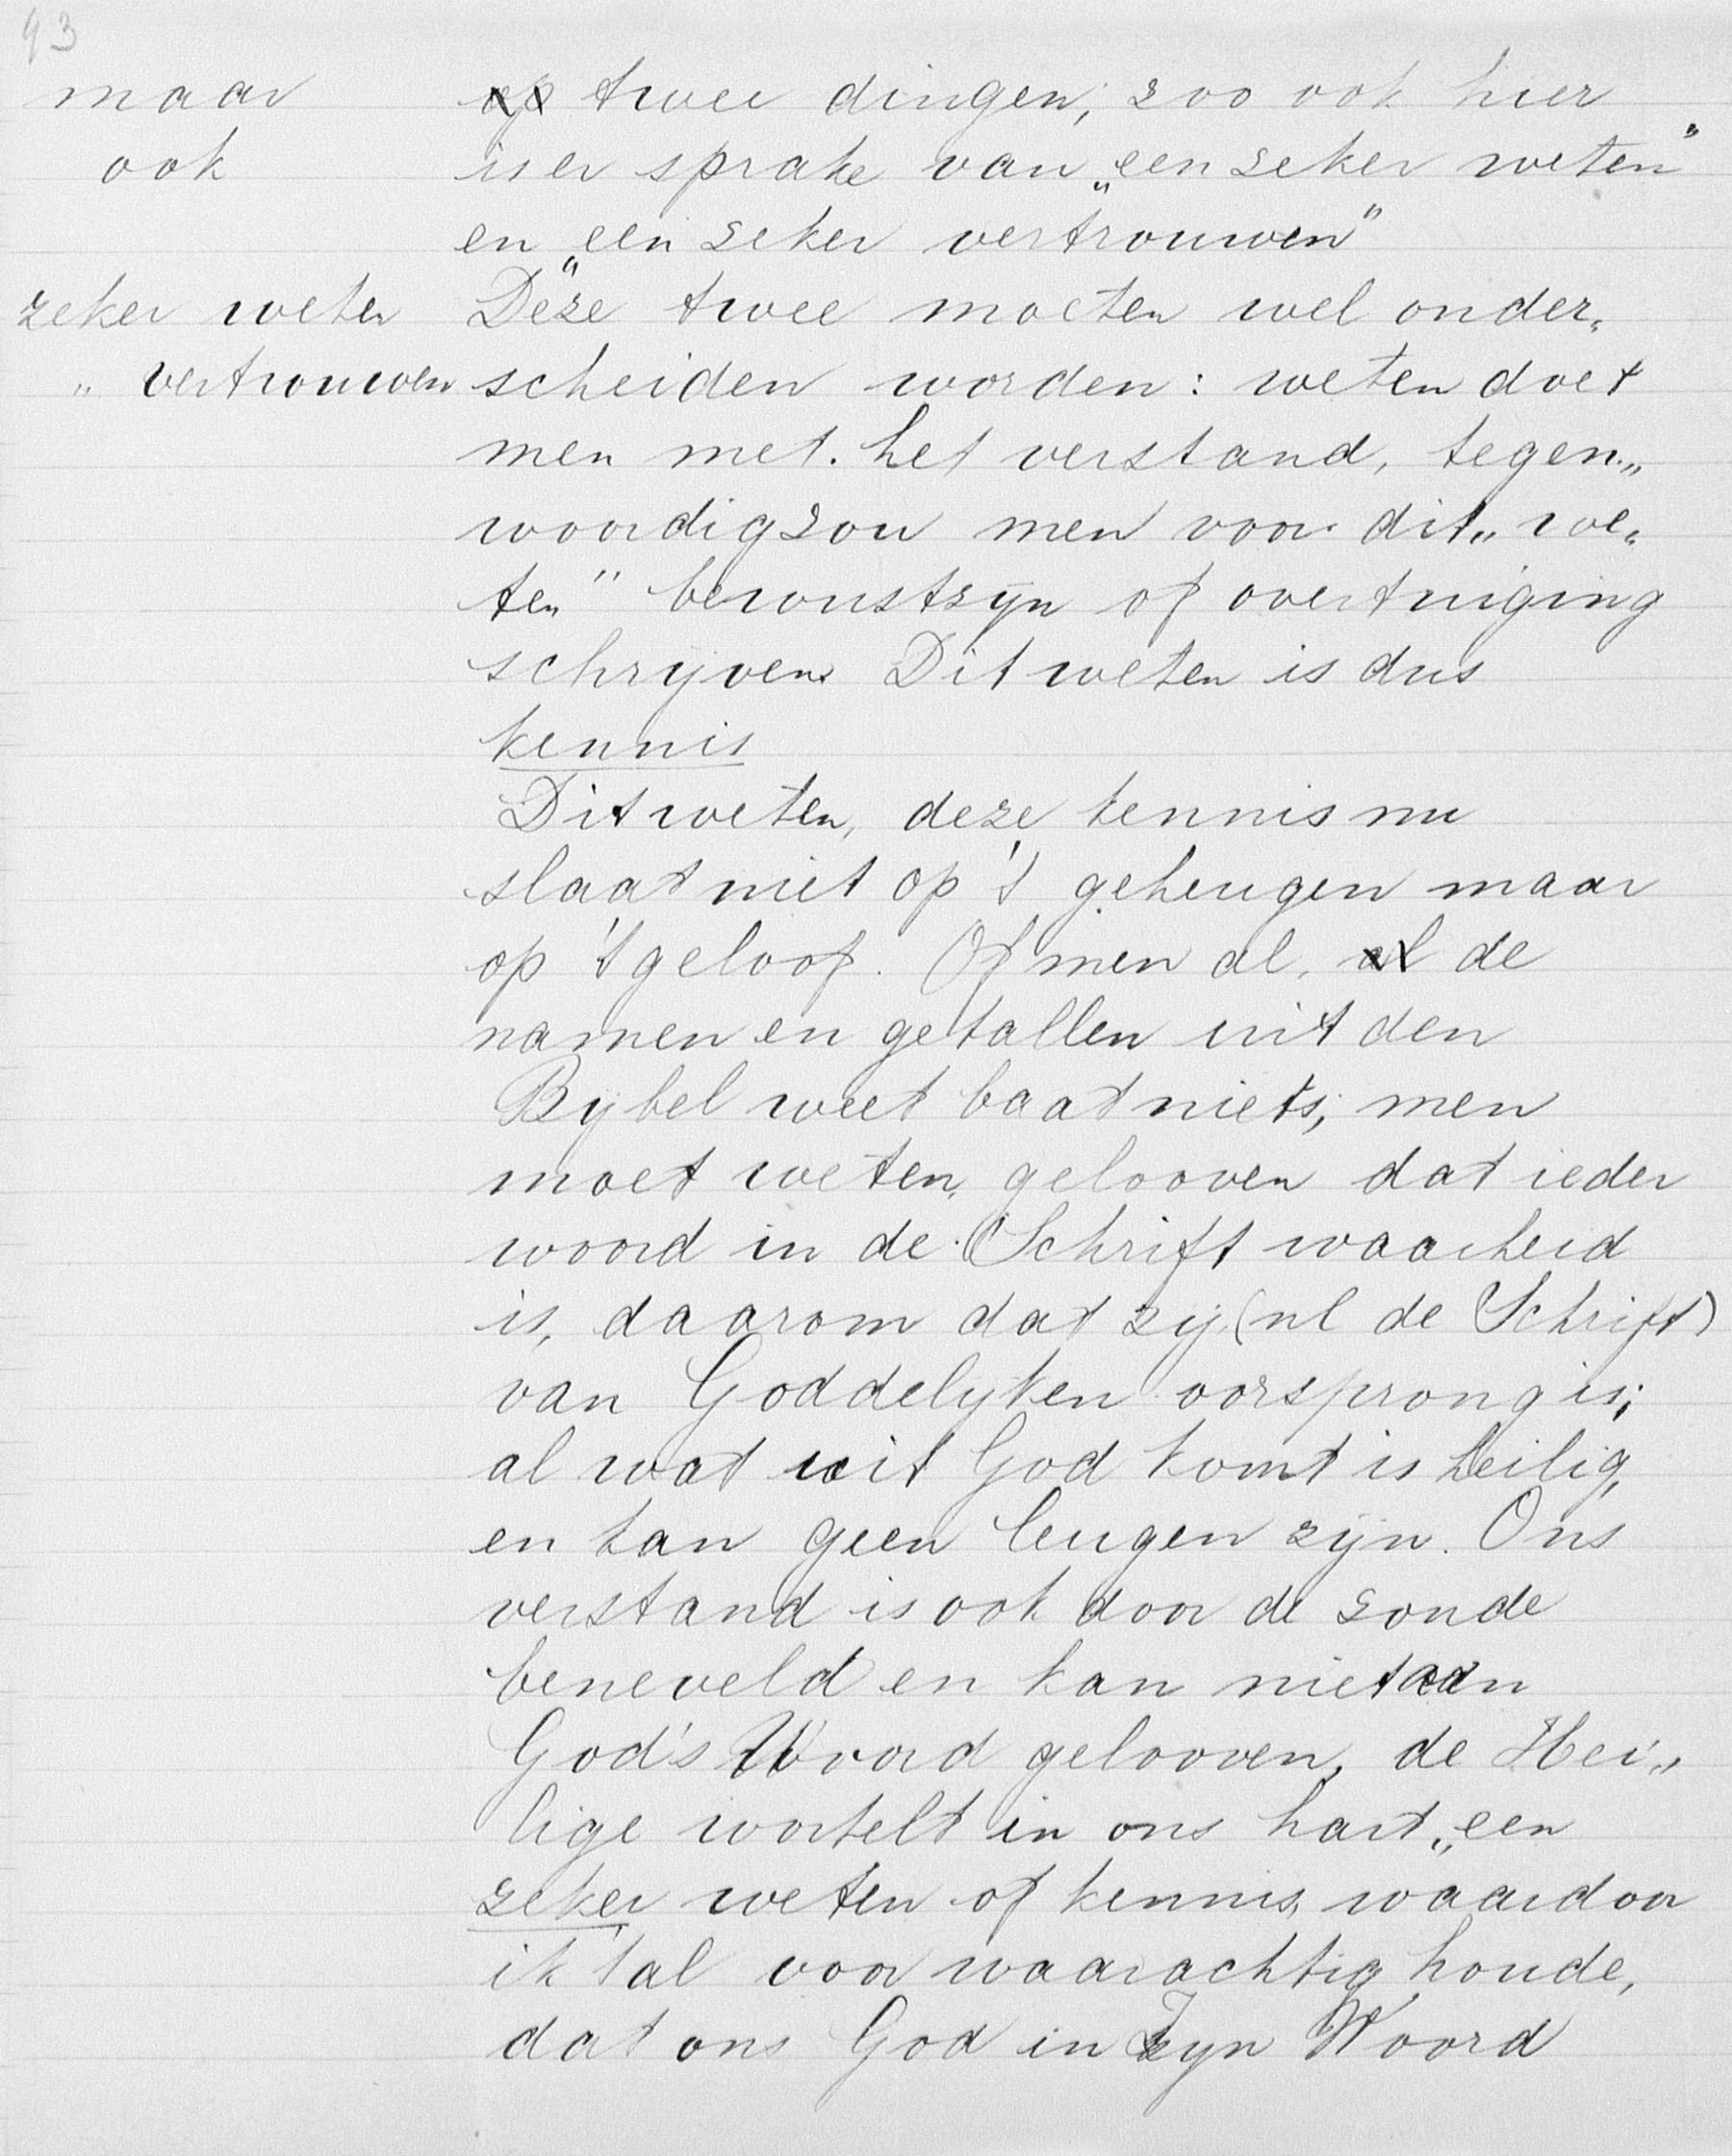 93
maar
ook
zeker weten
„ vertrouwen
op twee dingen; zoo ook hier
is er sprake van „een zeker weten"
en „een zeker vertrouwen"
Deze twee moeten wel onder„
scheiden worden: weten doet
men met het verstand, tegen„
woordig zou men voor dit „we„
ten" bewustzijn of overtuiging
schrijven. Dit weten is dus
kennis
Dit weten, deze kennis nu
slaat niet op 't geheugen maar
op 't geloof. Of men al, al de
namen en getallen uit den
Bijbel weet baat niets; men
moet weten, gelooven dat ieder
woord in de Schrift waarheid
is, daarom dat zij (nl de Schrift)
van Goddelijken oorsprong is;
al wat uit God komt is heilig,
en kan geen leugen zijn. Ons
verstand is ook door de zonde
beneveld en kan niet aan
God's Woord gelooven, de Hei„
lige wortelt in ons hart „een
zeker weten of kennis, waardoor
ik 't al voor waarachtig houde,
dat ons God in Zijn Woord